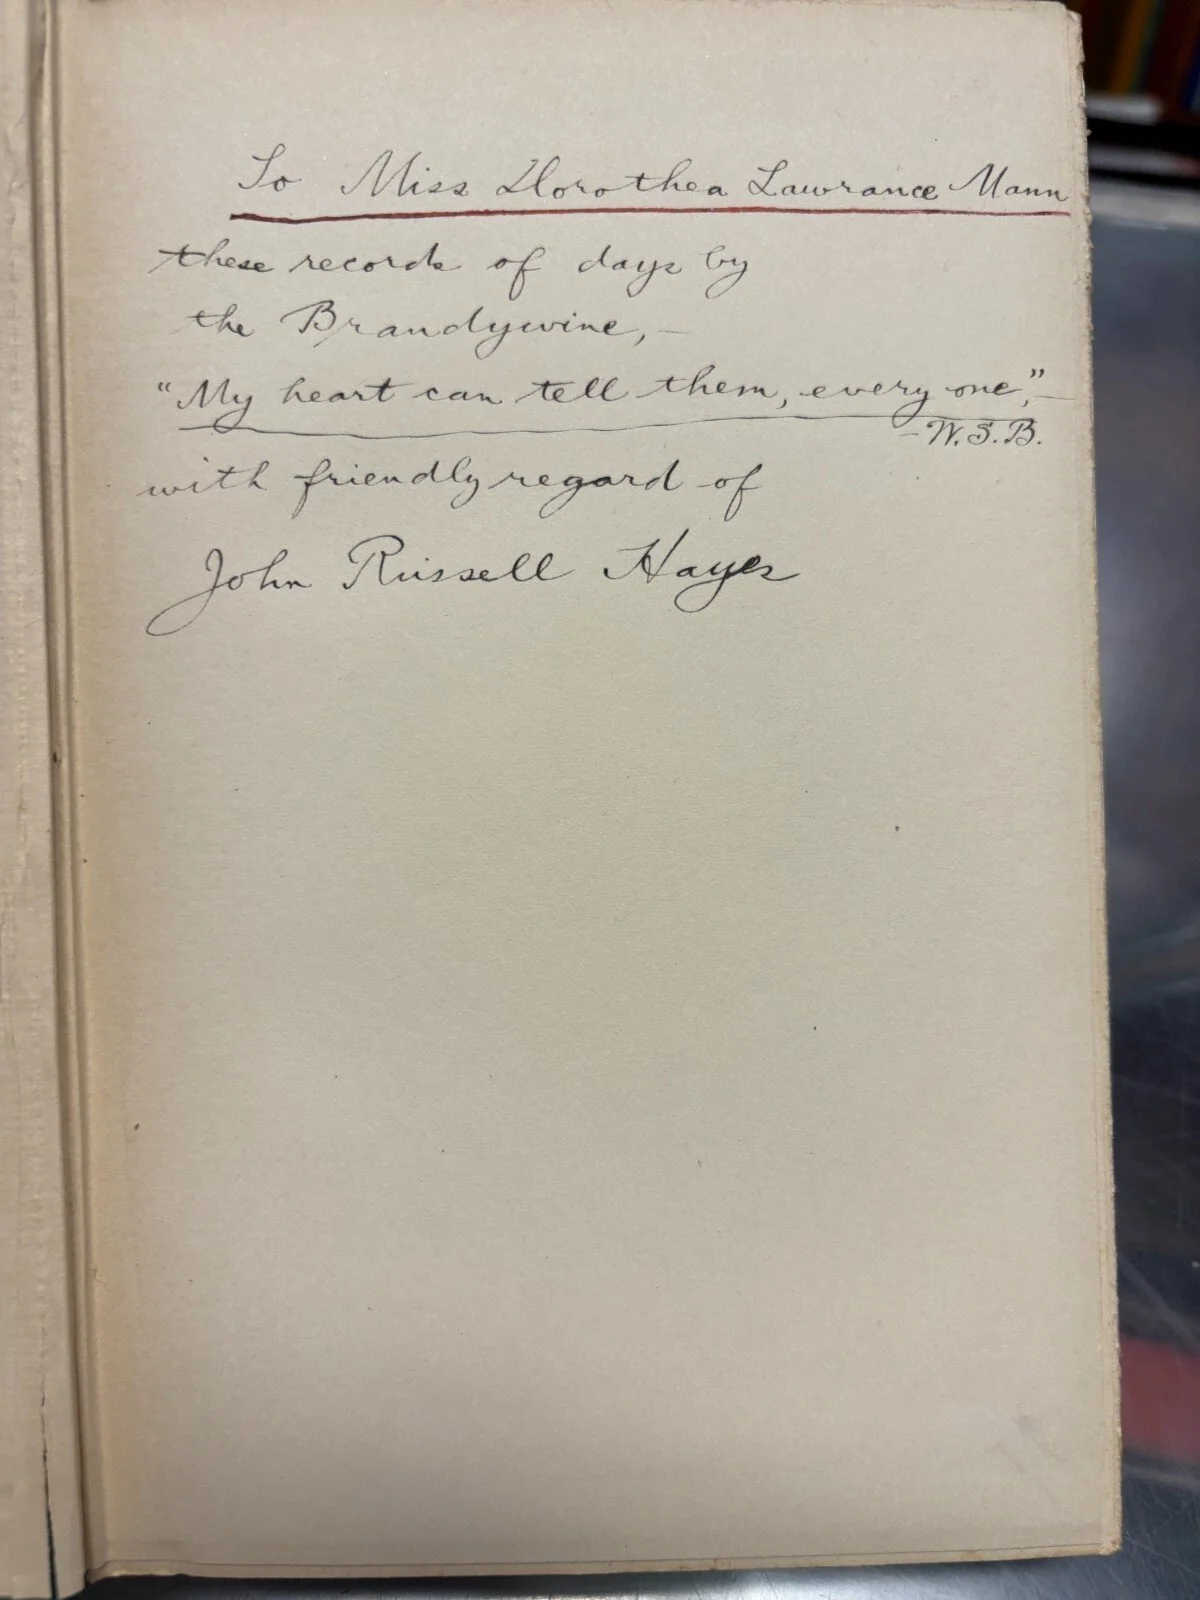 To Miss Dorothea Lawrance Mann
these records of days by
the Brandywine,—
"My heart can tell them, every one",—
—W. S. B.
with friendly regard of
John Russell Hayes